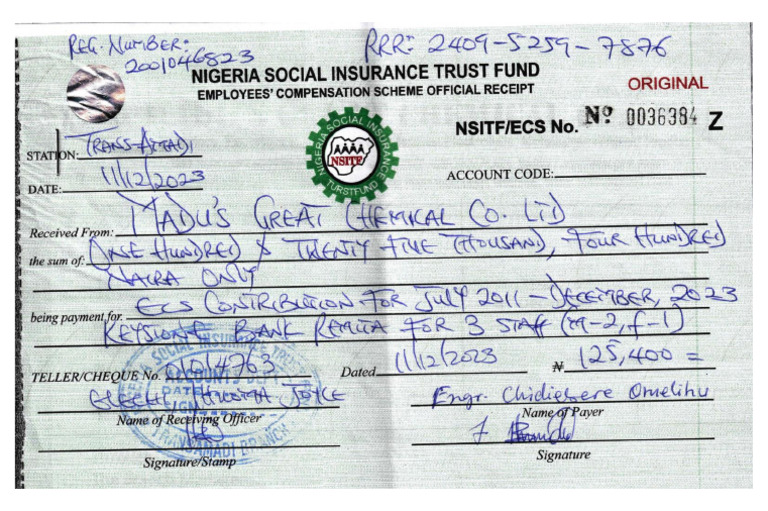 REG. NUMBER: 2001046823
RRR: 2409-5259-7876
NIGERIA SOCIAL INSURANCE TRUST FUND
EMPLOYEES' COMPENSATION SCHEME OFFICIAL RECEIPT
ORIGINAL
NSITF/ECS No. Nº 0036384 Z
NIGERIA SOCIAL INSURANCE
NSITF
TURSTFUND
STATION: TRANS-AMADI
ACCOUNT CODE:
DATE: 11/12/2023
Received From: MADU'S GREAT CHEMICAL CO. LTD
the sum of: ONE HUNDRED & TWENTY FIVE THOUSAND, FOUR HUNDRED
NAIRA ONLY
being payment for. ECS CONTRIBUTION FOR JULY 2011 - DECEMBER, 2023
KEYSTONE BANK REMITA FOR 3 STAFF (M-2, F-1)
TELLER/CHEQUE No.
Dated 11/12/2023
₦ 125,400 =
JOYCE
Engr. Chidiebere Omelihu
Name of Receiving Officer
Name of Payer
Signature/Stamp
Signature
TRANSAMADI BRANCH